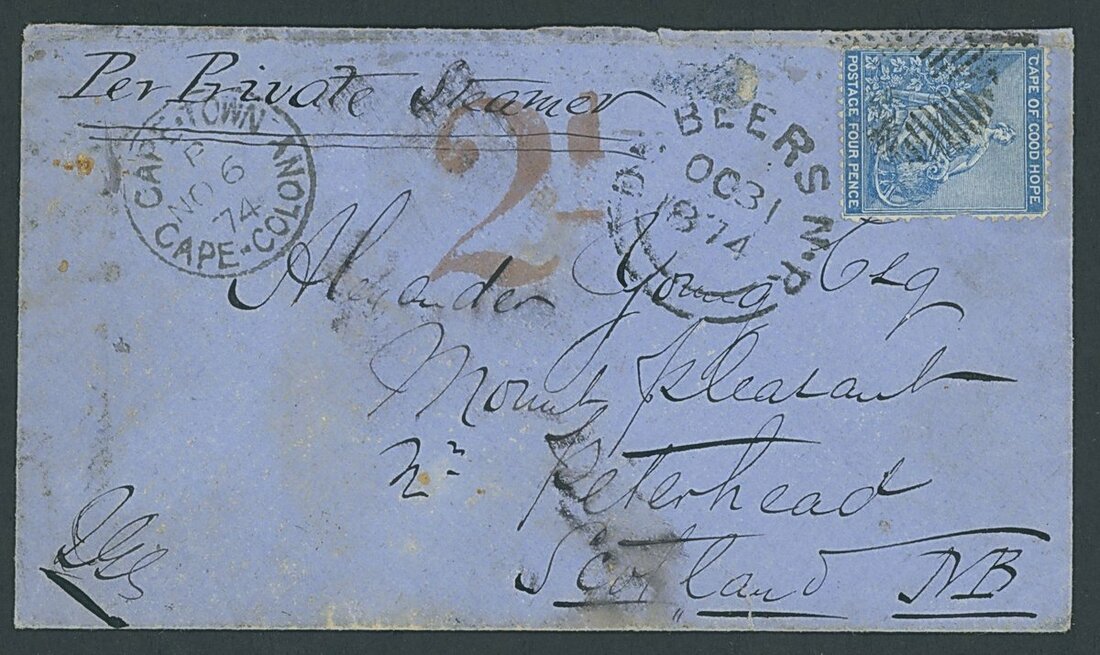 Per Private Steamer
CAPE-TOWN CAPE-COLONY
NO 6
74
2'-
BEERS M.P.
OC31
1874
CAPE OF GOOD HOPE
POSTAGE FOUR PENCE
Alexander Young Esq
Mount Pleasant
Nr
Peterhead
Scotland NB